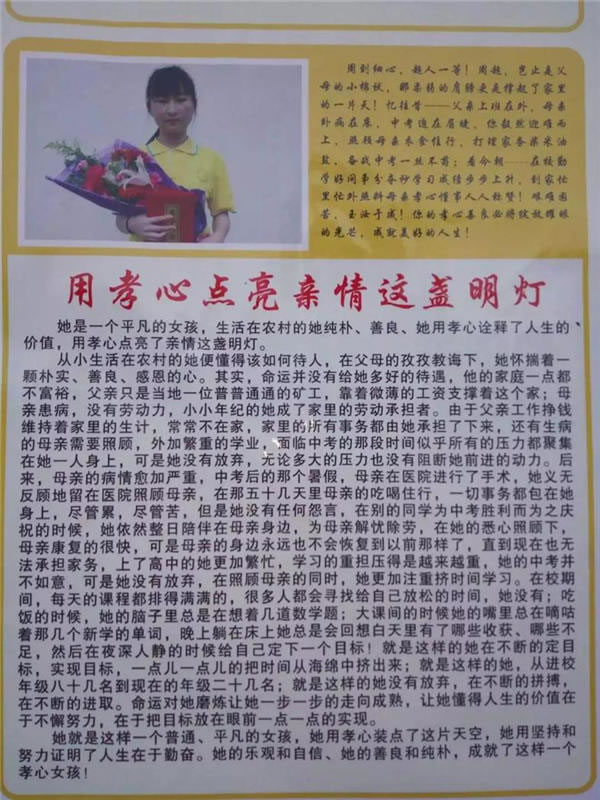 周到细心，超人一等！周超，岂止是父
母的小棉袄，那柔弱的肩膀更是撑起了家里
的一片天！忆往昔——父亲上班在外，母亲
卧病在床，中考迫在眉睫，你毅然迎难而
上，照顾母亲衣食住行，打理家务柴米油
盐，备战中考一丝不苟；看今朝……在校勤
学好问争分夺秒学习成绩步步上升，到家忙
里忙外照料母亲孝心懂事人人称赞！艰难困
苦，玉汝于成！你的孝心善良必将绽放耀眼
的光芒，成就美好的人生！
用孝心点亮亲情这盏明灯
她是一个平凡的女孩，生活在农村的她纯朴、善良、她用孝心诠释了人生的
价值，用孝心点亮了亲情这盏明灯。
从小生活在农村的她便懂得该如何待人，在父母的孜孜教诲下，她怀揣着一
颗朴实、善良、感恩的心。其实，命运并没有给她多好的待遇，他的家庭一点都
不富裕，父亲只是当地一位普普通通的矿工，靠着微薄的工资支撑着这个家；母
亲患病，没有劳动力，小小年纪的她成了家里的劳动承担者。由于父亲工作挣钱
维持着家里的生计，常常不在家，家里的所有事务都由她承担了下来，还有生病
的母亲需要照顾，外加繁重的学业，面临中考的那段时间似乎所有的压力都聚集
在她一人身上，可是她没有放弃，无论多大的压力也没有阻断她前进的动力。后
来，母亲的病情愈加严重，中考后的那个暑假，母亲在医院进行了手术，她义无
反顾地留在医院照顾母亲，在那五十几天里母亲的吃喝住行，一切事务都包在她
身上，尽管累，尽管苦，但是她没有任何怨言，在别的同学为中考胜利而为之庆
祝的时候，她依然整日陪伴在母亲身边，为母亲解忧除劳，在她的悉心照顾下，
母亲康复的很快，可是母亲的身边永远也不会恢复到以前那样了，直到现在也无
法承担家务，上了高中的她更加繁忙，学习的重担压得是越来越重，她的中考并
不如意，可是她没有放弃，在照顾母亲的同时，她更加注重挤时间学习。在校期
间，每天的课程都排得满满的，很多人都会寻找给自己放松的时间，她没有；吃
饭的时候，她的脑子里总是在想着几道数学题；大课间的时候她的嘴里总在嘀咕
着那几个新学的单词，晚上躺在床上她总是会回想白天里有了哪些收获、哪些不
足，然后在夜深人静的时候给自己定下一个目标！就是这样的她在不断的定目
标，实现目标，一点儿一点儿的把时间从海绵中挤出来；就是这样的她，从进校
年级八十几名到现在的年级二十几名；就是这样的她没有放弃，在不断的拼搏，
在不断的进取。命运对她磨炼让她一步一步的走向成熟，让她懂得人生的价值在
于不懈努力，在于把目标放在眼前一点一点的实现。
她就是这样一个普通、平凡的女孩，她用孝心装点了这片天空，她用坚持和
努力证明了人生在于勤奋。她的乐观和自信、她的善良和纯朴，成就了这样一个
孝心女孩！